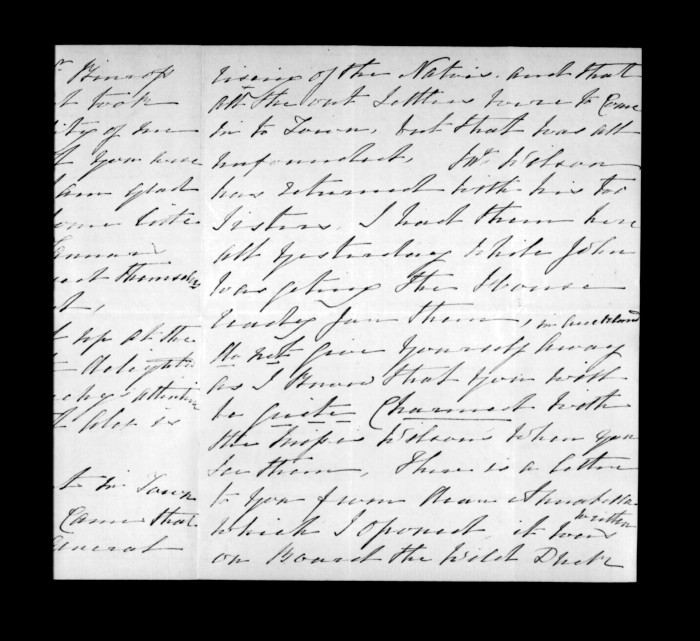 t took
ity of me
t you were
am glad
ome little
themselves
t up at the
delight
attention
t Alex is
t in Town
Came that
General
rising of the Natives. and that
all the out Settlers were to Come
in to Town, but that was all
unfounded, Mr. Wilson
has returned with his two
Sisters, I had them here
all yesterday while John
was getting the House
ready for them, in Auckland
do not give yourself away
as I Know that you will
be quite Charmed with
the Miss Wilsons when you
see them, There is a letter
to you from dear
which I opened it was written
on Board the Wild Duck